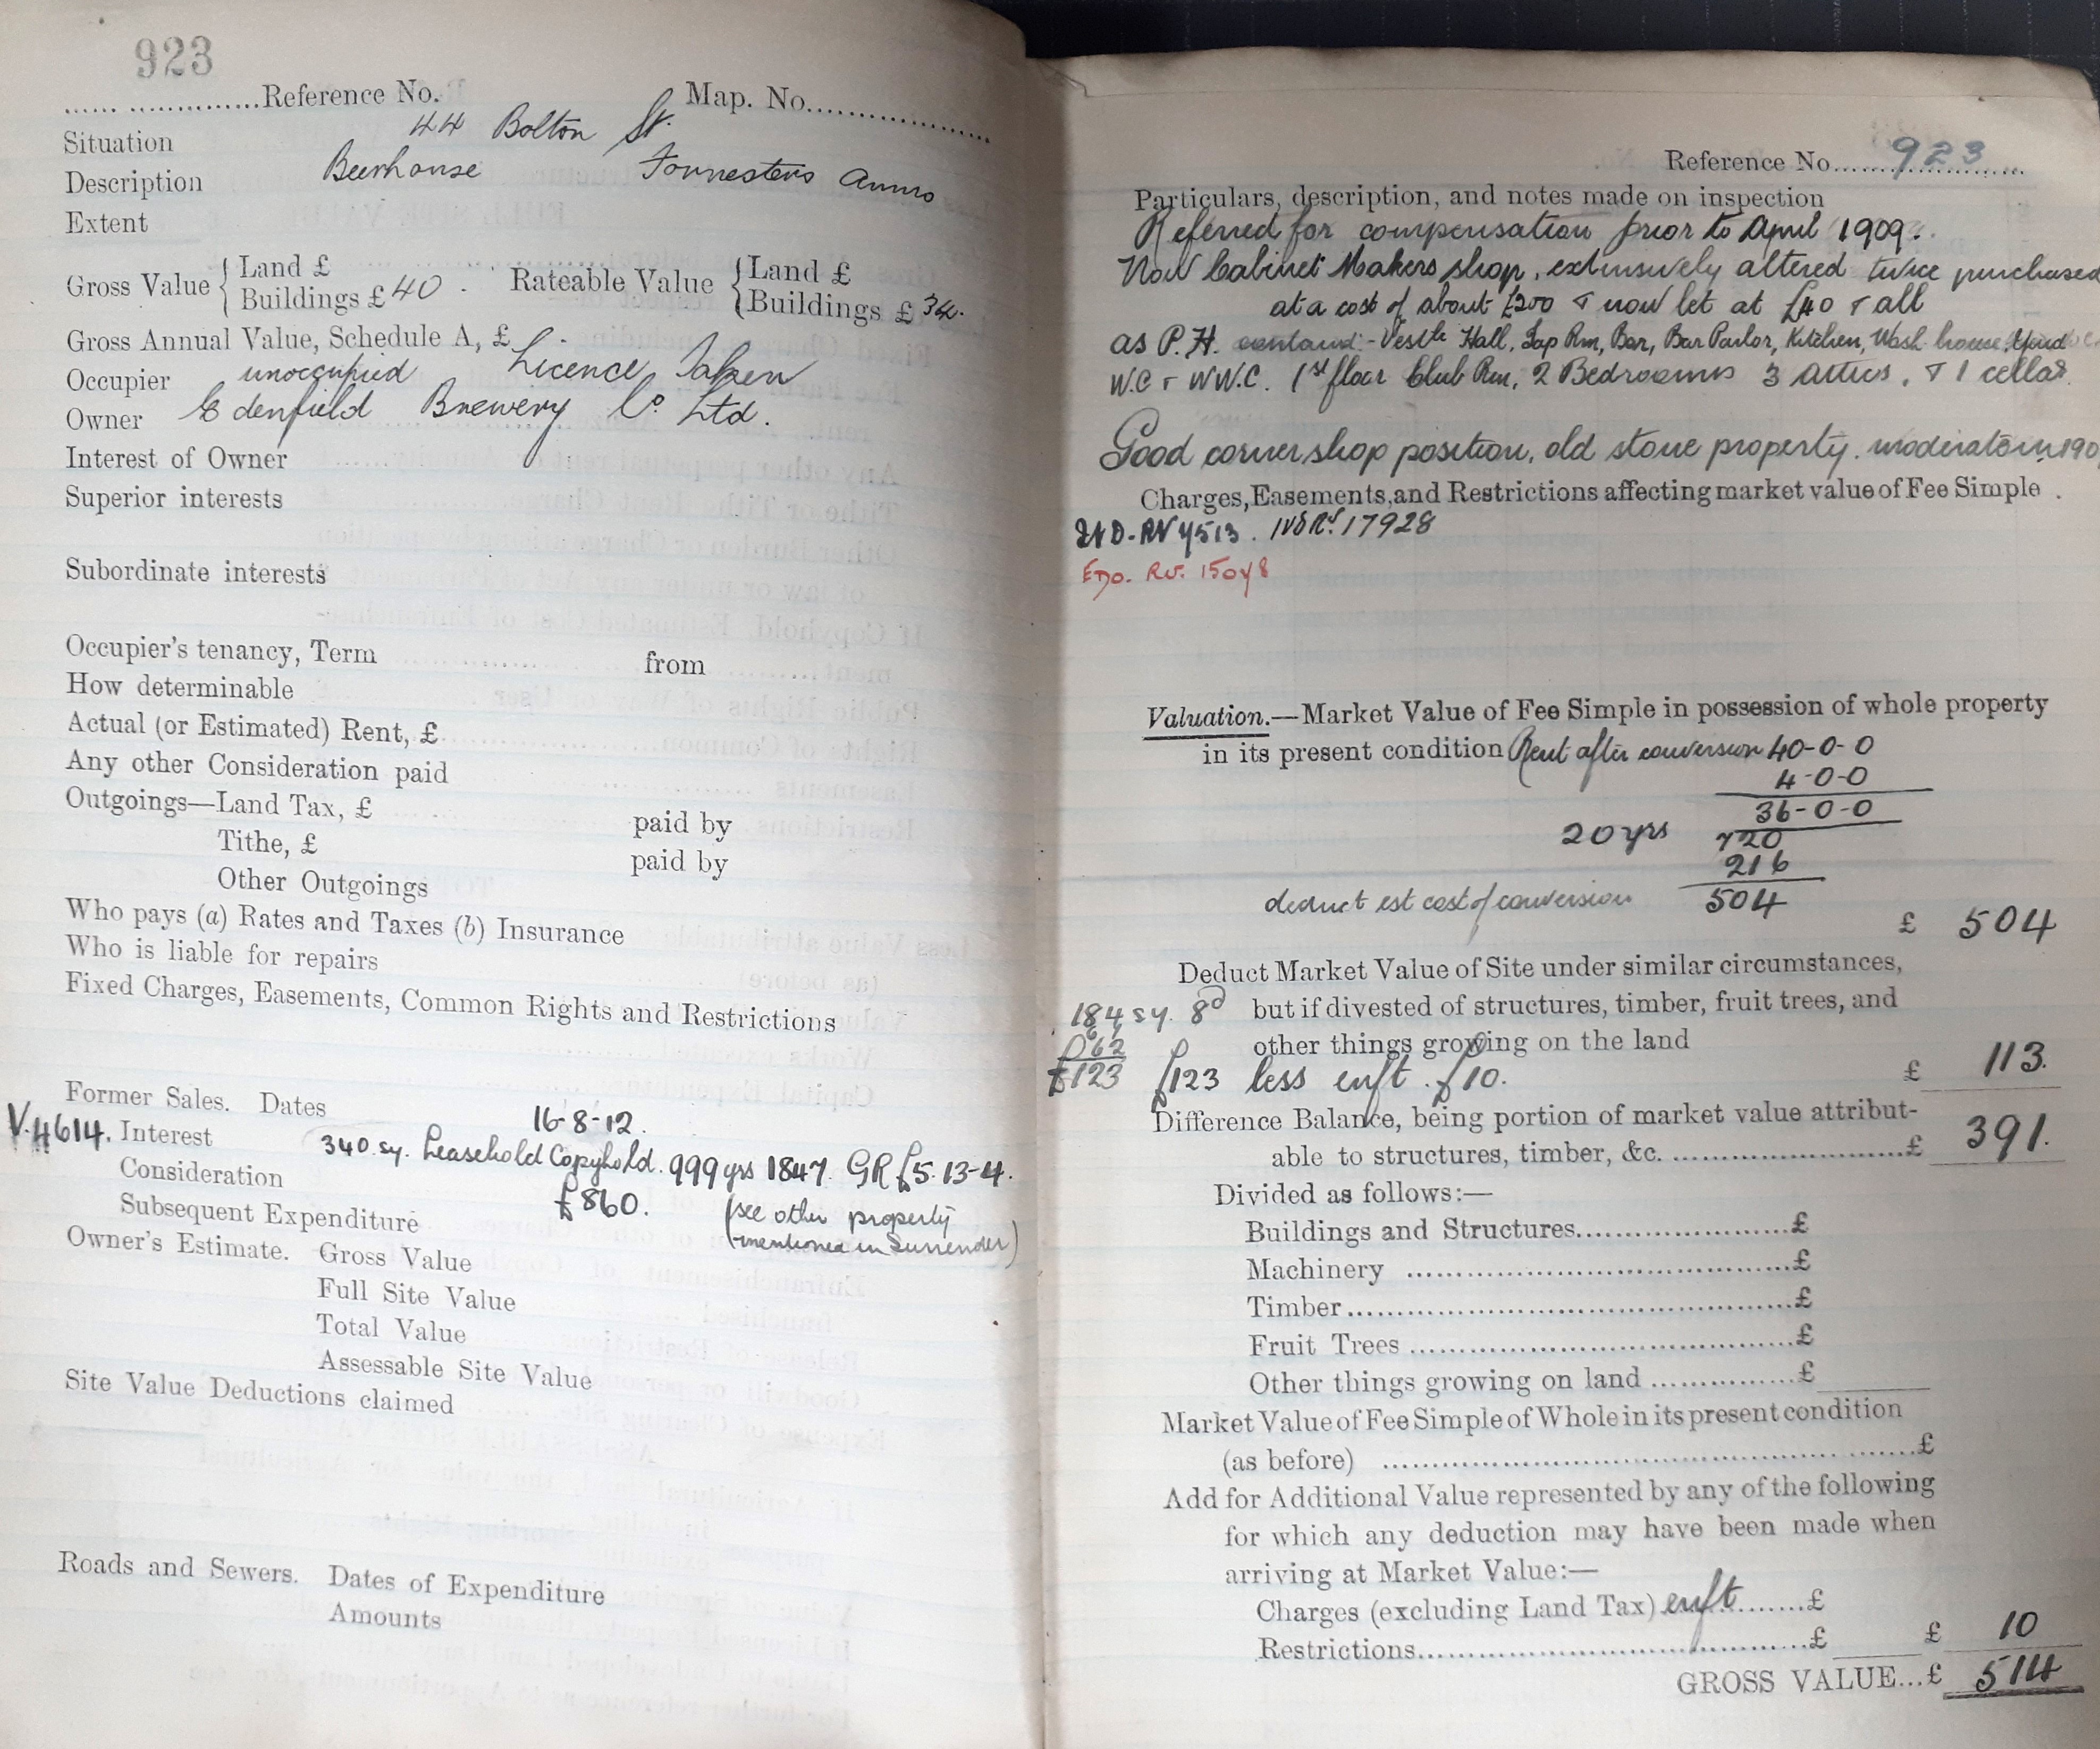 923
Reference No. Map. No.
Situation 44 Bolton St.
Description Beerhouse Forresters Arms
Extent
Gross Value { Land £
Buildings £ 40 . Rateable Value { Land £
Buildings £ 34.
Gross Annual Value, Schedule A, £
Occupier unoccupied Licence Taken
Owner Edenfield Brewery Co. Ltd.
Interest of Owner
Superior interests
Subordinate interests
Occupier's tenancy, Term from
How determinable
Actual (or Estimated) Rent, £
Any other Consideration paid
Outgoings—Land Tax, £ paid by
Tithe, £ paid by
Other Outgoings
Who pays (a) Rates and Taxes (b) Insurance
Who is liable for repairs
Fixed Charges, Easements, Common Rights and Restrictions
Former Sales. Dates 16-8-12.
V.4614. Interest 340 sy. Leasehold Copyhold. 999 yrs 1847. GR £5.13-4.
Consideration £860. (see other property
Subsequent Expenditure mentioned in Surrender)
Owner's Estimate. Gross Value
Full Site Value
Total Value
Assessable Site Value
Site Value Deductions claimed
Roads and Sewers. Dates of Expenditure
Amounts
Reference No. 923
Particulars, description, and notes made on inspection
Referred for compensation prior to April 1909.
Now Cabinet Makers shop, extensively altered twice purchased
at a cost of about £200 & now let at £40 & all
as P.H. contained:- Vestle Hall, Tap Rm, Bar, Bar Parlor, Kitchen, Wash house, Yard
W.C & WW.C. 1st floor Club Rm, 2 Bedrooms 3 attics, & 1 cellar.
Good corner shop position, old stone property. moderate in 190
Charges, Easements, and Restrictions affecting market value of Fee Simple .
17928
Valuation.—Market Value of Fee Simple in possession of whole property
in its present condition Rent after conversion 40-0-0
4-0-0
36-0-0
20 yrs 720
216
deduct est cost of conversion 504
£ 504
Deduct Market Value of Site under similar circumstances,
184 sy. 8d but if divested of structures, timber, fruit trees, and
other things growing on the land
£123 £123 less enft. £10. £ 113.
Difference Balance, being portion of market value attribut-
able to structures, timber, &c. £ 391.
Divided as follows:—
Buildings and Structures £
Machinery £
Timber £
Fruit Trees £
Other things growing on land £
Market Value of Fee Simple of Whole in its present condition
(as before) £
Add for Additional Value represented by any of the following
for which any deduction may have been made when
arriving at Market Value:—
Charges (excluding Land Tax) enft £
Restrictions £ £ 10
GROSS VALUE...£ 514